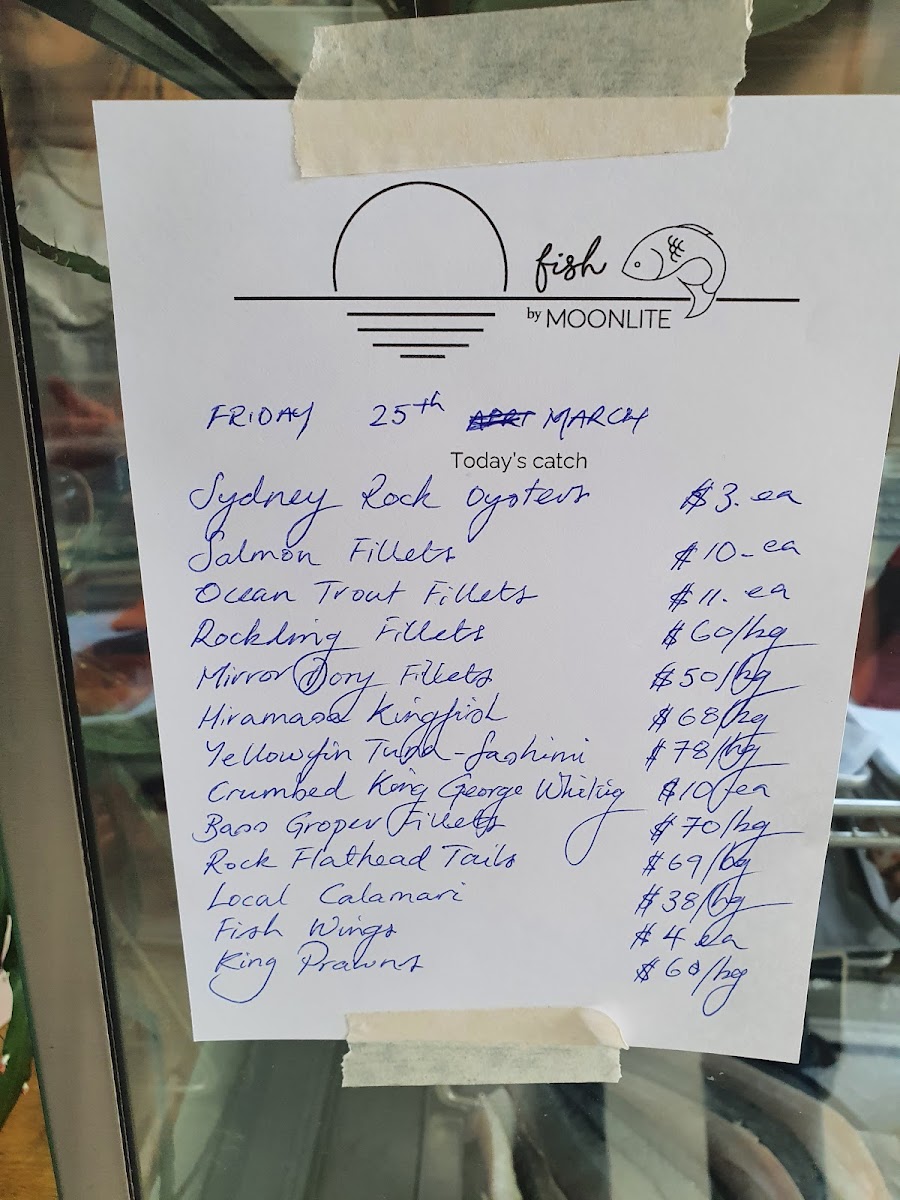 fish
by MOONLITE
FRIDAY 25th MARCH
Today's catch
Sydney Rock Oysters $3. ea
Salmon Fillets $10- ea
Ocean Trout Fillets $11. ea
Rockling Fillets $60/kg
Mirror Dory Fillets $50/kg
Hiramasa Kingfish $68/kg
Yellowfin Tuna - Sashimi $78/kg
Crumbed King George Whiting $10 ea
Bass Groper Fillets $70/kg
Rock Flathead Tails $69/kg
Local Calamari $38/kg
Fish Wings $4 ea
King Prawns $60/kg